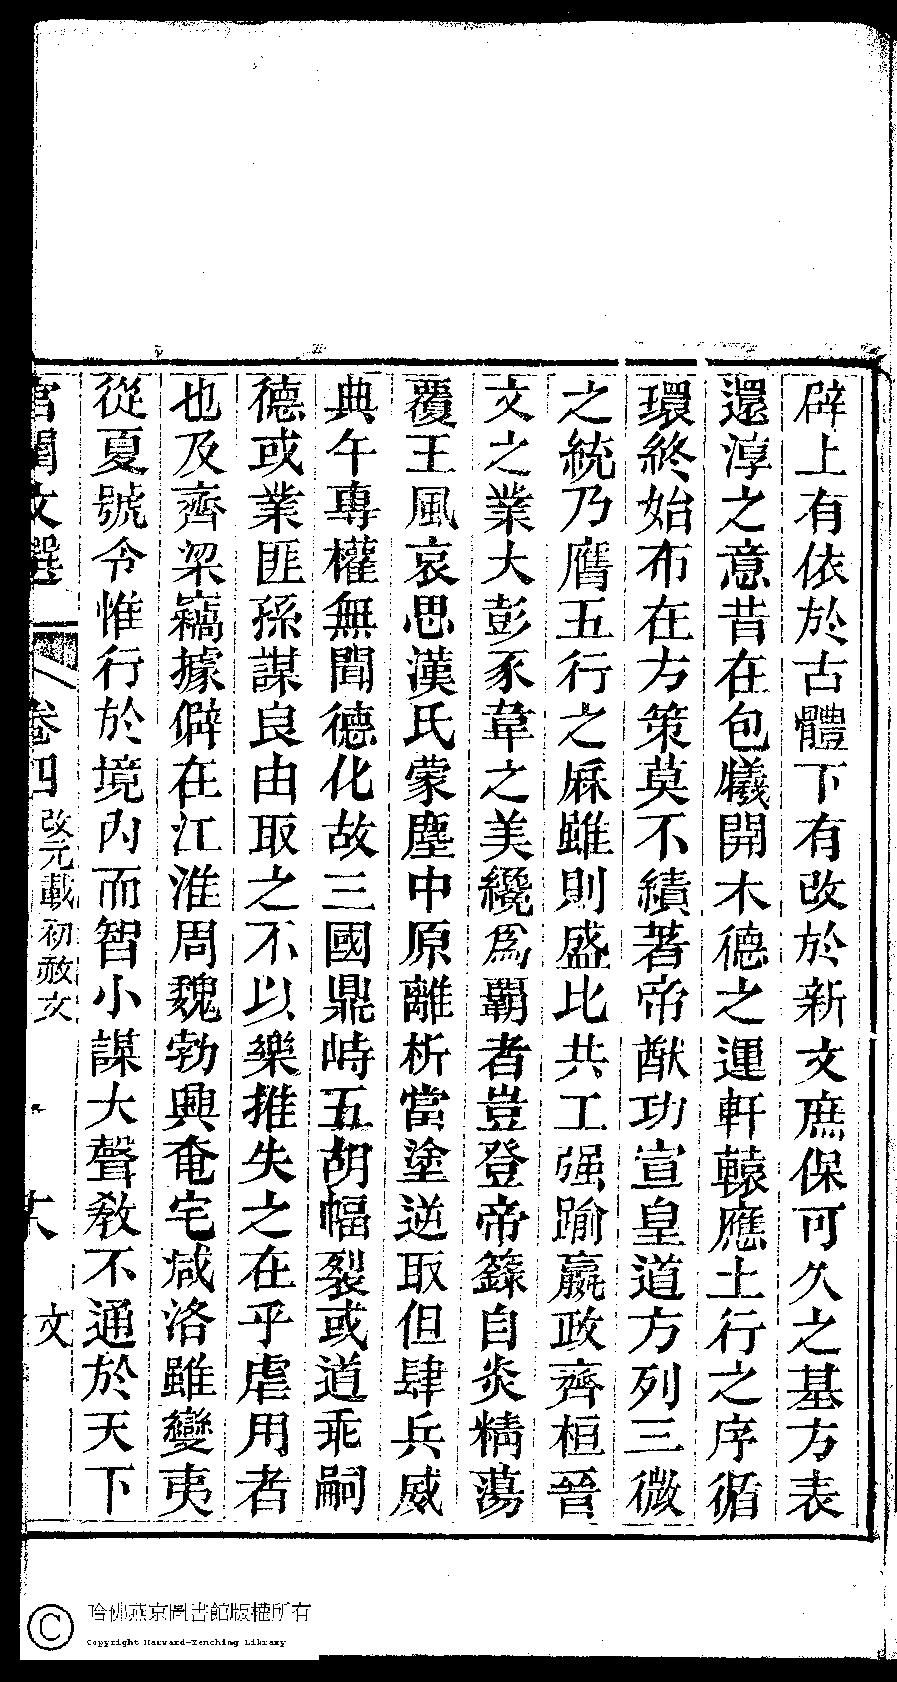 辟上有依於古體下有改於新文庶保可久之基方表
還淳之意昔在包犧開木德之運軒轅應土行之序循
環終始布在方策莫不績著帝猷功宣皇道方列三微
之統乃膺五行之厤雖則盛比共工强踰嬴政齊桓晉
文之業大彭豕韋之美纔爲覇者豈登帝籙自炎精蕩
覆王風哀思漢氏蒙塵中原離析當塗逆取但肆兵威
典午專權無聞德化故三國鼎峙五胡幅裂或道乖嗣
德或業匪孫謀良由取之不以樂推失之在乎虐用者
也及齊梁竊據僻在江淮周魏勃興奄宅咸洛雖變夷
從夏號令惟行於境內而智小謀大聲敎不通於天下
宮閨文選
卷四 改元載初赦文
文
哈佛燕京圖書館版權所有
Copyright Harvard-Yenching Library